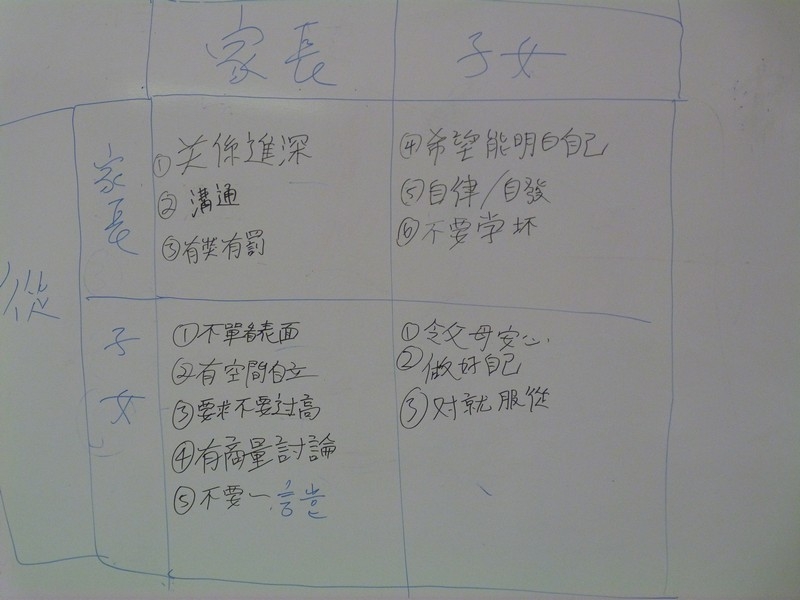 家長
子女
從
家長
①关係進深
②溝通
③有奖有罰
④希望能明白自己
⑤自律/自發
⑥不要学坏
子女
①不單看表面
②有空間自立
③要求不要过高
④有商量討論
⑤不要一言堂
①令父母安心
②做好自己
③对就服從